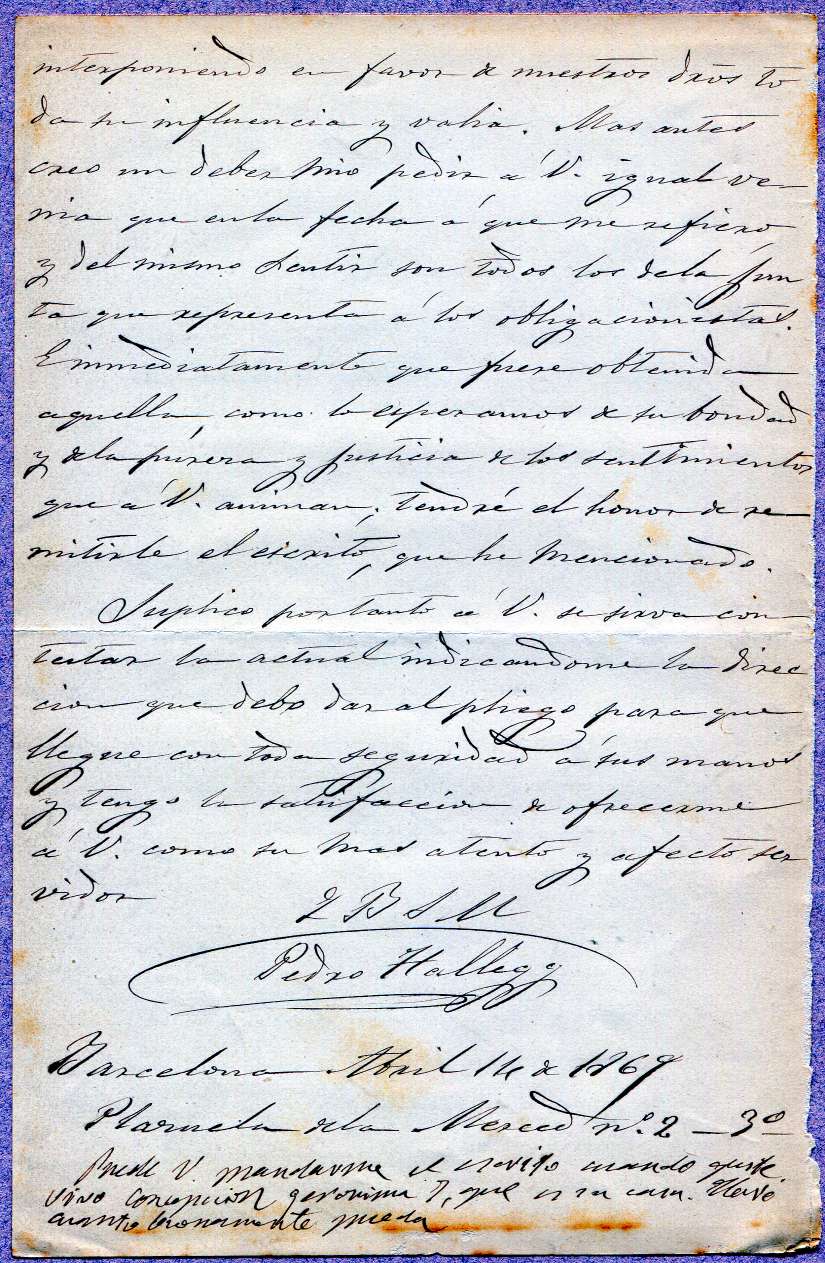 interponiendo en favor de nuestros dr̄os to
da su influencia y valia. Mas antes
creo un deber mio pedir á V. igual ve-
nia que en la fecha á que me refiero,
y del mismo sentir son todos los de la jun
ta que representa á los obligacionistas.
E inmediatamente que fuere obtenida
aquella, como lo esperamos de su bondad
y dela pureza y justicia de los sentimientos
que á V. animan, tendré el honor de re-
mitirle el escrito, que he mencionado.
Suplico portanto á V. se sirva con
testar la actual indicandome la direc
cion que debo dar al pliego para que
llegue con toda seguridad a sus manos
y tengo la satisfaccion de ofrecerme
á V. como su mas atento y afecto ser
vidor
Q B S M
Pedro Hallegg
Barcelona Abril 14 de 1869
Plazuela dela Merced nº. 2 - 3º
Puede V. mandarme el escrito cuando guste.
Vivo Concepcion Geronima 7, que es su casa.
cuanto buenamente pueda